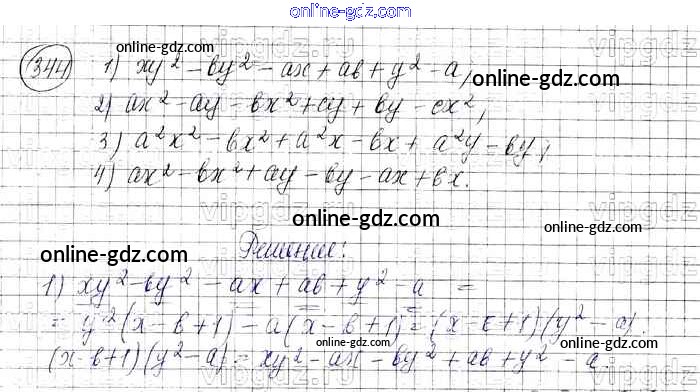 online-gdz.com
344 1) xy² - by² - ax + ab + y² - a,
online-gdz.com
online-gdz.com
2) ax² - ay - bx² + cy + by - cx²,
3) a²x² - bx² + a²x - bx + a²y - by,
4) ax² - bx² + ay - by - ax + bx.
vipgdz.ru
online-gdz.com
online-gdz.com
online-gdz.com
Решение:
1) xy² - by² - ax + ab + y² - a =
= y²(x - b + 1) - a(x - b + 1) = (x - b + 1)(y² - a).
(x - b + 1)(y² - a) = xy² - ax - by² + ab + y² - a.
online-gdz.com
online-gdz.com